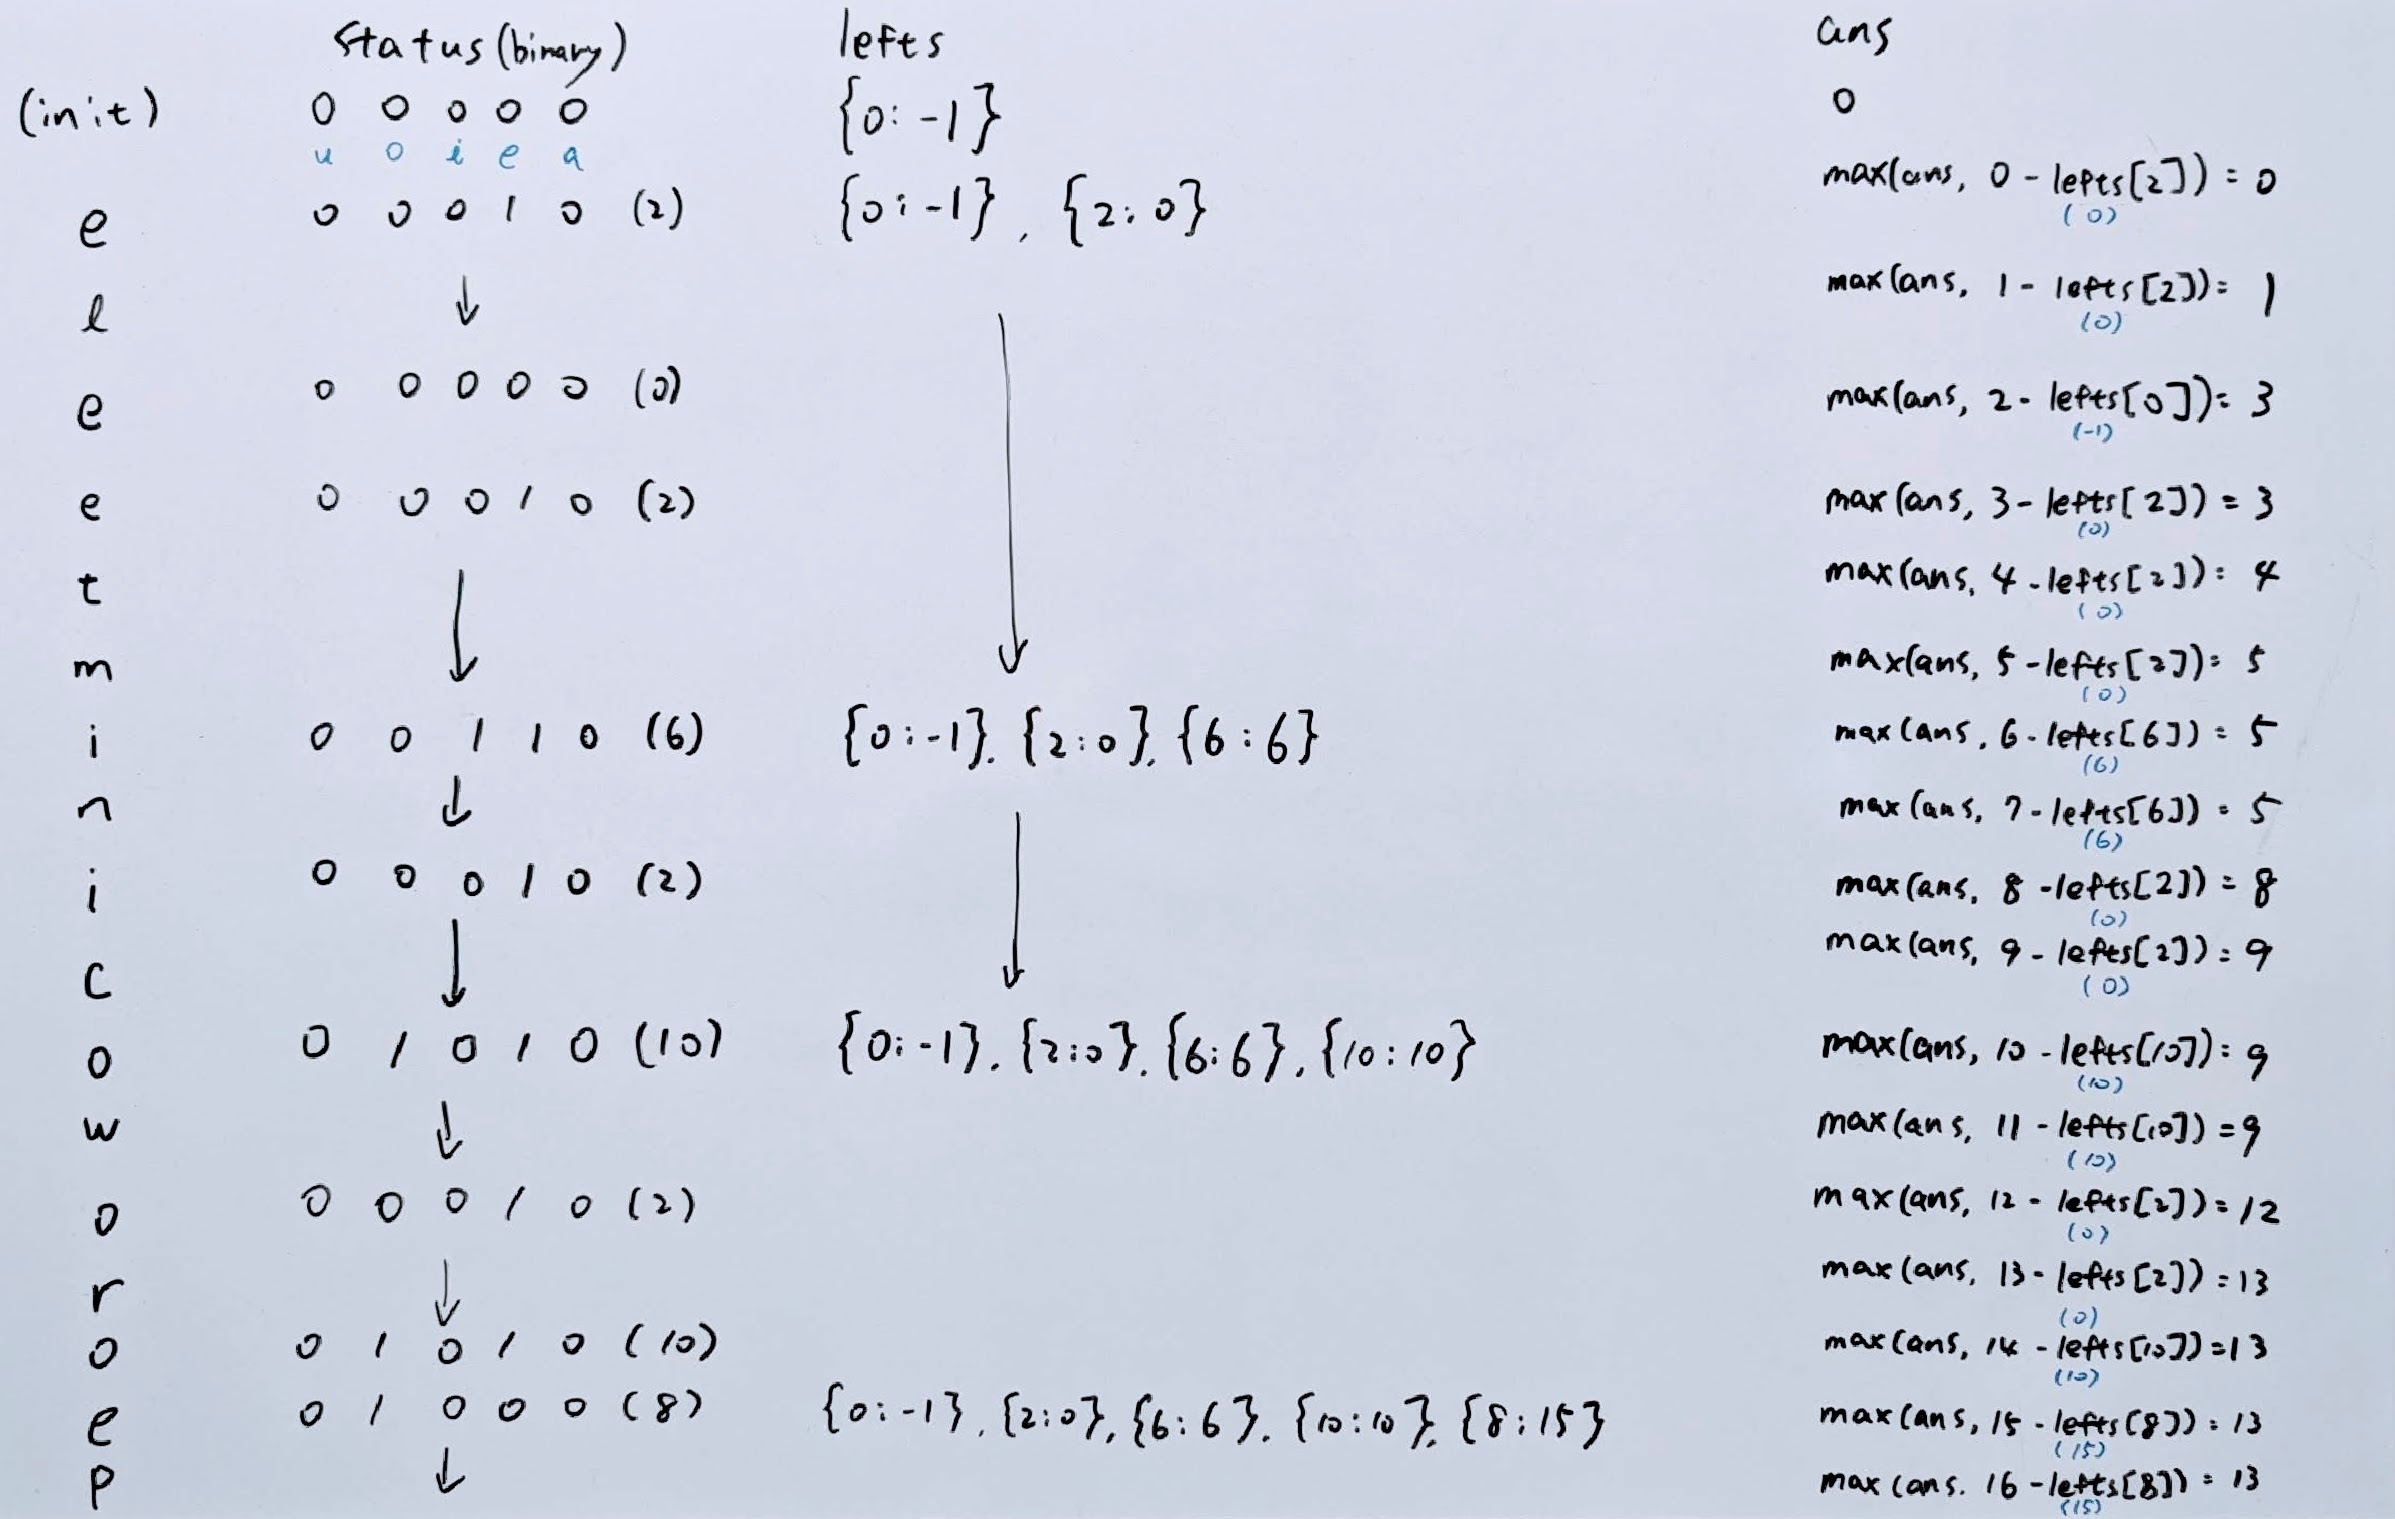 status(binary) lefts ans
(init) 0 0 0 0 0 {0:-1} 0
u o i e a
e 0 0 0 1 0 (2) {0:-1}, {2:0} max(ans, 0-lefts[2])=0
(0)
l ↓ max(ans, 1-lefts[2])=1
(0)
e 0 0 0 0 0 (0) max(ans, 2-lefts[0])=3
(-1)
e 0 0 0 1 0 (2) max(ans, 3-lefts[2])=3
(0)
t max(ans, 4-lefts[2])=4
(0)
m ↓ max(ans, 5-lefts[2])=5
(0)
i 0 0 1 1 0 (6) {0:-1}, {2:0}, {6:6} max(ans, 6-lefts[6])=5
(6)
n ↓ max(ans, 7-lefts[6])=5
(6)
i 0 0 0 1 0 (2) max(ans, 8-lefts[2])=8
(0)
c ↓ max(ans, 9-lefts[2])=9
(0)
o 0 1 0 1 0 (10) {0:-1}, {2:0}, {6:6}, {10:10} max(ans, 10-lefts[10])=9
(10)
w ↓ max(ans, 11-lefts[10])=9
(10)
o 0 0 0 1 0 (2) max(ans, 12-lefts[2])=12
(0)
r ↓ max(ans, 13-lefts[2])=13
(0)
o 0 1 0 1 0 (10) max(ans, 14-lefts[10])=13
(10)
e 0 1 0 0 0 (8) {0:-1}, {2:0}, {6:6}, {10:10}, {8:15} max(ans, 15-lefts[8])=13
(15)
p ↓ max(ans. 16-lefts[8])=13
(15)